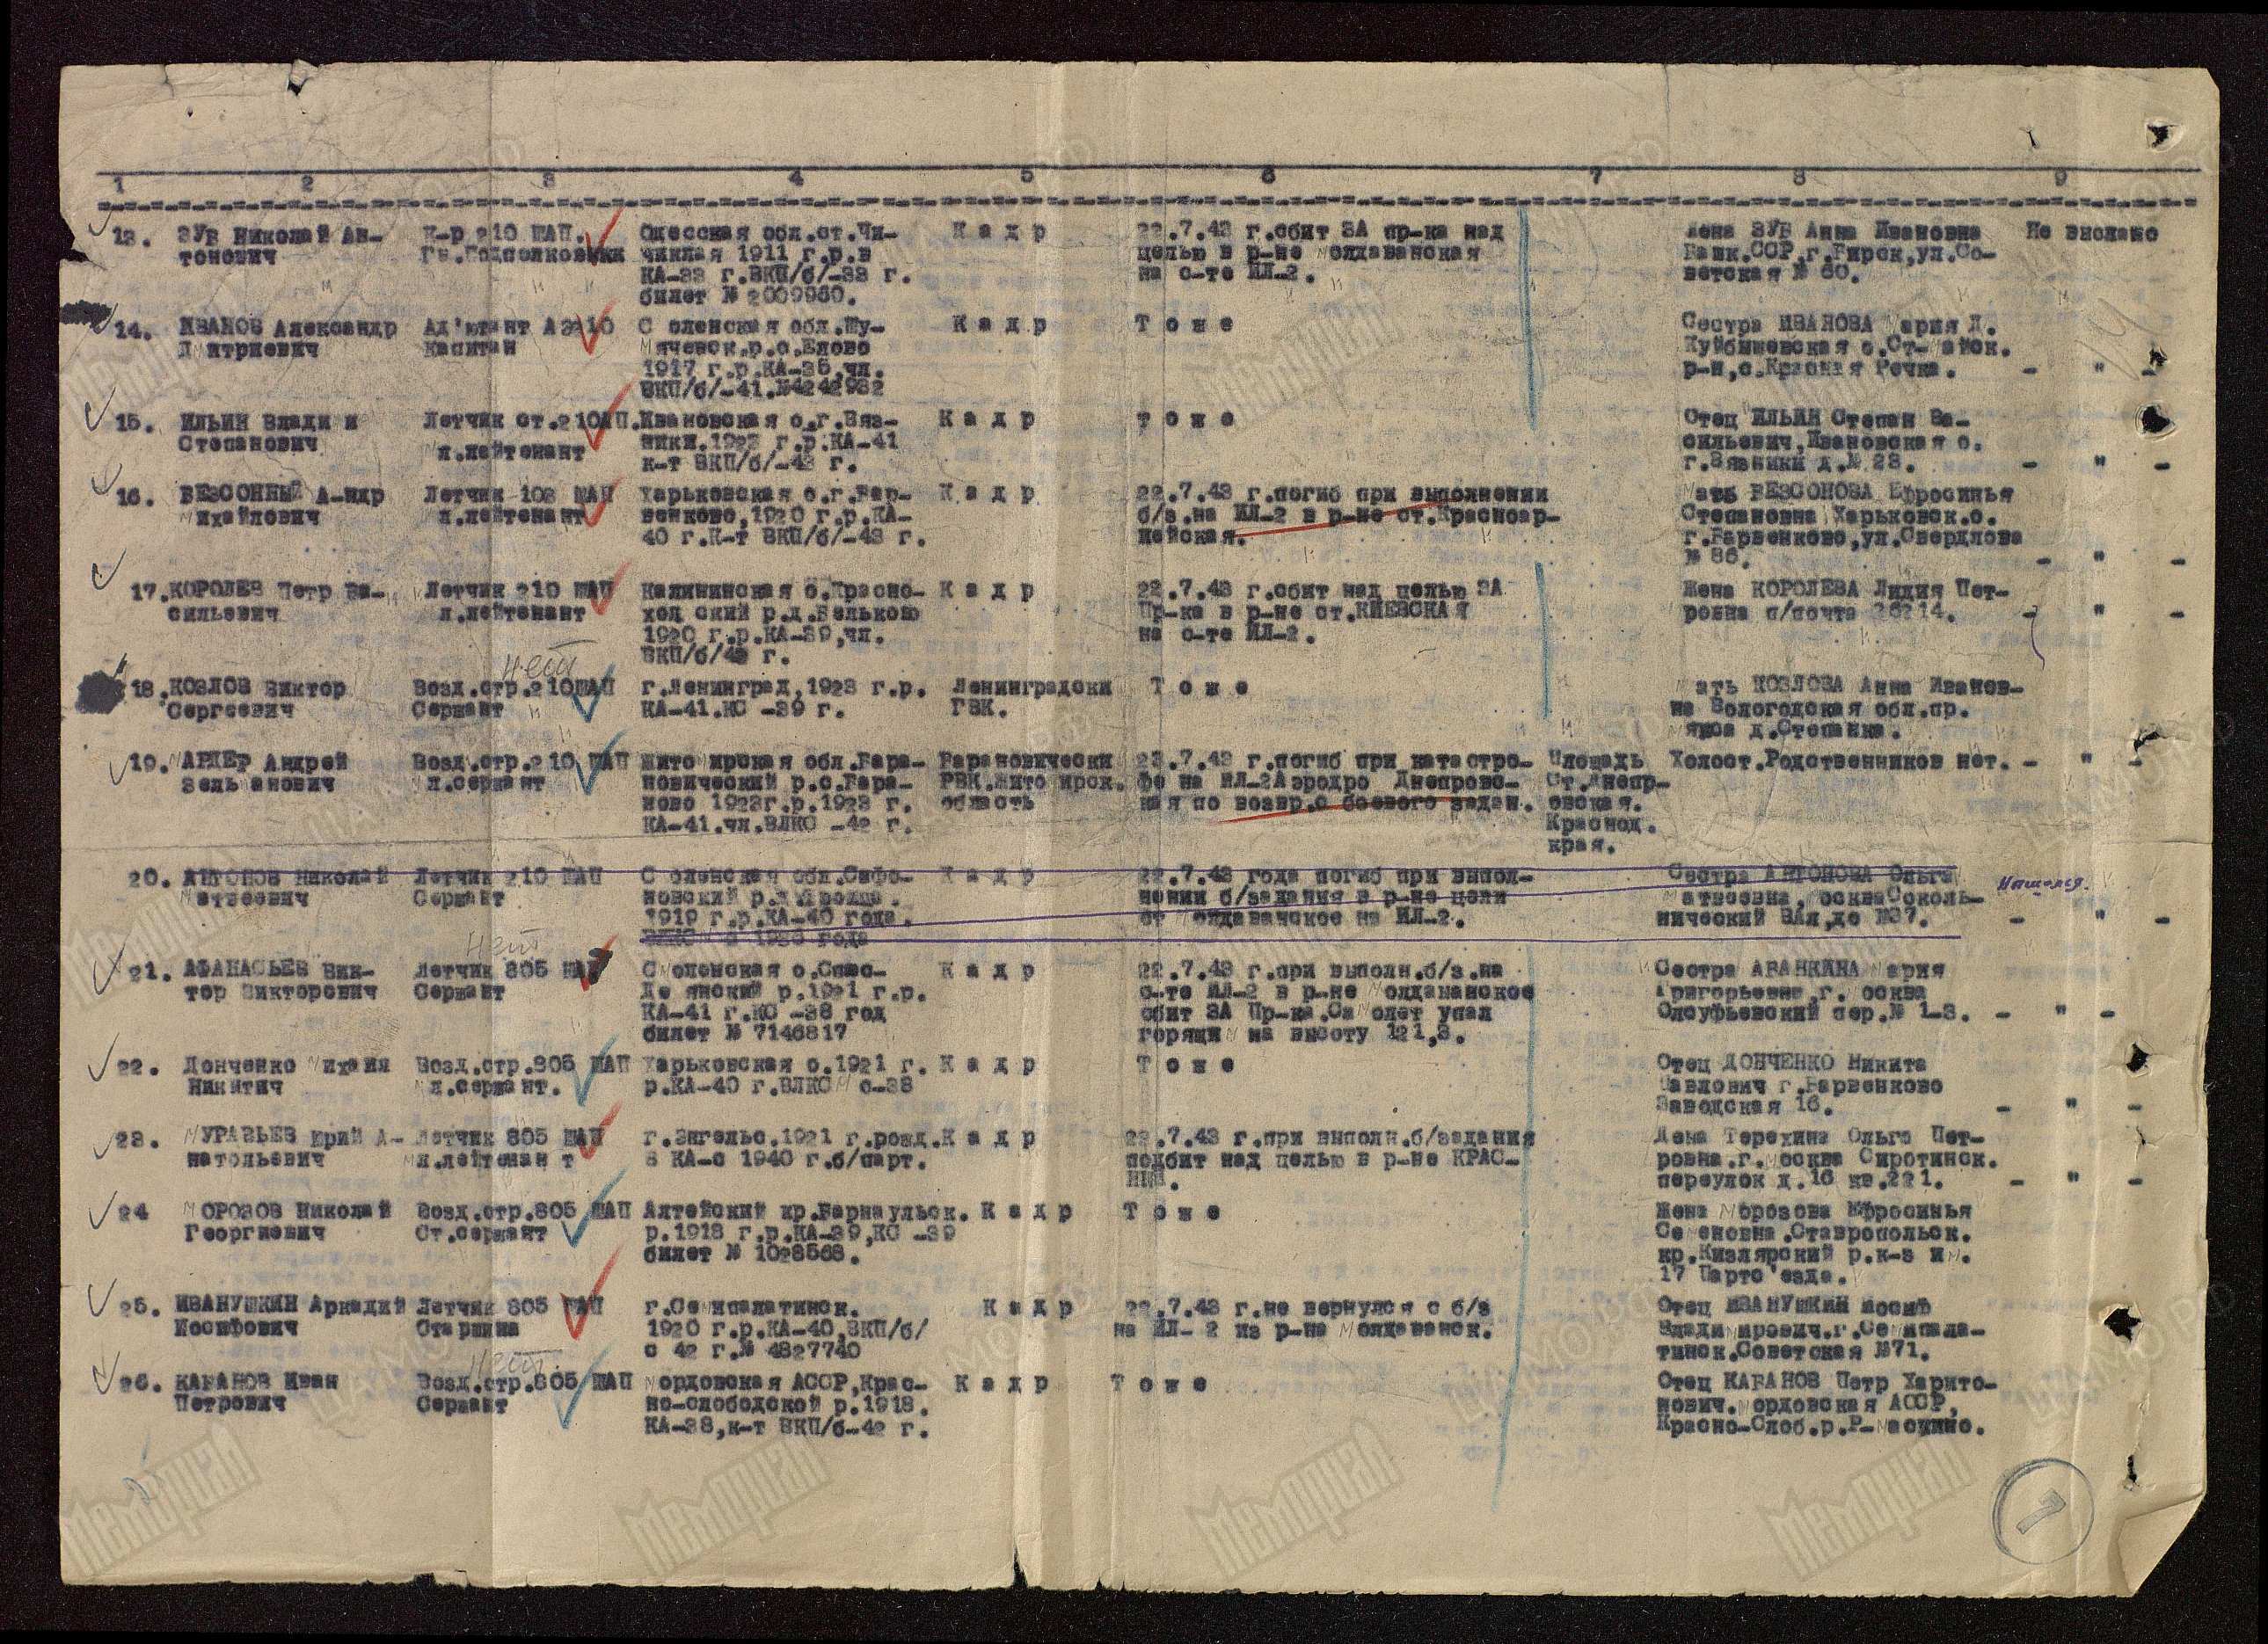 1 2 3 4 5 6 7 8 9
13. ЗУБ Николай Ан- К-р 210 ШАП. Одесская обл.ст.Чи- К а д р 22.7.43 г.сбит ЗА пр-ка над Жена ЗУБ Анна Ивановна Не выслано
тонович Гв.Подполковник чиклая 1911 г.р.в целью в р-не Молдаванская Башк.ССР,г.Бирск,ул.Со-
КА-33 г.ВКП/б/-38 г. на с-те ИЛ-2. ветская № 60.
билет № 2009960.
14. ИВАНОВ Александр Ад'ютант АЭ210 Смоленская обл.Шу- К а д р Т о ж е Сестра ИВАНОВА Мария Д.
Дмитриевич Капитан мячевск.р.с.Елово Куйбышевская о.Ст-Майск.
1917 г.р.КА-35,чл. р-н,с.Красная Речка. - " -
ВКП/б/-41.№4242932
15. ИЛЬИН Владим Летчик ст.210АП. Ивановская о.г.Вяз- К а д р т о ж е Отец ИЛЬИН Степан Ва-
Степанович м.лейтенант ники.1923 г.р.КА-41 сильевич,Ивановская о.
к-т ВКП/б/-43 г. г.Вязники д.№ 23. - " -
16. БЕССОННЫЙ А-ндр Летчик 103 ШАП Харьковская о.г.Бар- К а д р 22.7.43 г.погиб при выполнении Мать БЕССОНОВА Ефросинья
Михайлович м.лейтенант венково,1920 г.р.КА- б/з.на ИЛ-2 в р-не ст.Красноар- Степановна Харьковск.о.
40 г.К-т ВКП/б/-43 г. мейская. г.Барвенково,ул.Свердлова
№ 86. - " -
17.КОРОЛЕВ Петр Ва- Летчик 210 ШАП Калининская о.Красно- К а д р 22.7.43 г.сбит над целью ЗА Жена КОРОЛЕВА Лидия Пет-
сильевич м.лейтенант холмский р.д.Бельково Пр-ка в р-не ст.КИЕВСКАЯ ровна п/почта 26214. - " -
1920 г.р.КА-39,чл. на с-те ИЛ-2.
ВКП/б/42 г.
нет
18.КОЗЛОВ Виктор Возд.стр.210ШАП г.Ленинград,1923 г.р. Ленинградски Т о ж е Мать КОЗЛОВА Анна Иванов-
Сергеевич Сержант КА-41.КСМ-39 г. ГВК. на Вологодская обл.пр.
Мякса д.Степанка.
19.МАРДЕР Андрей Возд.стр.210 ШАП Житомирская обл.Бара- Барановически 23.7.43 г.погиб при катастро- Площадь Холост.Родственников нет. - " -
Зельманович М.сержант новический р.с.Бара- РВК.Житомирск. фе на ИЛ-2Аэродром Днепровс- Ст.Днепр-
ново 1923г.р.1923 г. область кая по возвр.с боевого задан. овская.
КА-41.чл.ВЛКСМ-42 г. Краснод.
края.
20. АНТОНОВ Николай Летчик 210 ШАП Смоленская обл.Сафо- К а д р 22.7.43 года погиб при выпол- Сестра АНТОНОВА Ольга Нашелся.
Матвеевич Сержант новский р.д.Троица. нении б/задания в р-не цели Матвеевна,Москва Соколь-
1919 г.р.КА-40 года. ст.Молдаванское на ИЛ-2. нический ВАл,дом №37. - " -
ВЛКСМ с 1936 года
нет
21. АФАНАСЬЕВ Вик- Летчик 805 ШАП Смоленская о.Спас- К а д р 22.7.43 г.при выполн.б/з.на Сестра АВАНКИНА Мария
тор Викторович Сержант Деменский р.1921 г.р. с-те ИЛ-2 в р-не Молдаванское Григорьевна,г.Москва
КА-41 г.КСМ-38 год сбит ЗА Пр-ка.Самолет упал Олсуфьевский пер.№ 1-3. - " -
билет № 7146817 горящим на высоту 121,3.
22. Донченко Михаил Возд.стр.805 ШАП Харьковская о.1921 г. К а д р Т о ж е Отец ДОНЧЕНКО Никита
Никитич М.сержант. р.КА-40 г.ВЛКСМ с-38 Павлович г.Барвенково
Заводская 16. - " -
23. МУРАВЬЕВ Юрий А- Летчик 805 ШАП г.Энгельс.1921 г.рожд. К а д р 22.7.43 г.при выполн.б/задания Жена Терехина Ольга Пет-
натольевич Мл.лейтенант В КА-с 1940 г.б/парт. подбит над целью в р-не КРАС- ровна.г.Москва Сиротинск.
НЫЙ. переулок д.16 кв.221. - " -
24 МОРОЗОВ Николай Возд.стр.805 ШАП Алтайский кр.Барнаульск. К а д р Т о ж е Жена Морозова Ефросинья
Георгиевич Ст.сержант р.1918 г.р.КА-39,КСМ-39 Семеновна.Ставропольск.
билет № 1028568. кр.Кизлярский р.к-з им.
17 Партс'езда.
25. ИВАНУШКИН Аркадий Летчик 805 ШАП г.Семипалатинск. К а д р 22.7.43 г.не вернулся с б/з Отец ИВАНУШКИН Иосиф
Иосифович Старшина 1920 г.р.КА-40,ВКП/б/ на ИЛ-2 из р-на Молдаванск. Владимирович.г.Семипала-
с 42 г.№ 4827740 тинск.Советская №71.
нет
26. КАБАНОВ Иван Возд.стр.805 ШАП Мордовская АССР,Крас- К а д р Т о ж е Отец КАБАНОВ Петр Харито-
Петрович Сержант но-слободской р.1918. нович.Мордовская АССР,
КА-38,к-т ВКП/б-42 г. Красно-Слоб.р.Р-Маскино.
7
Мемориал Мемориал Мемориал Мемориал